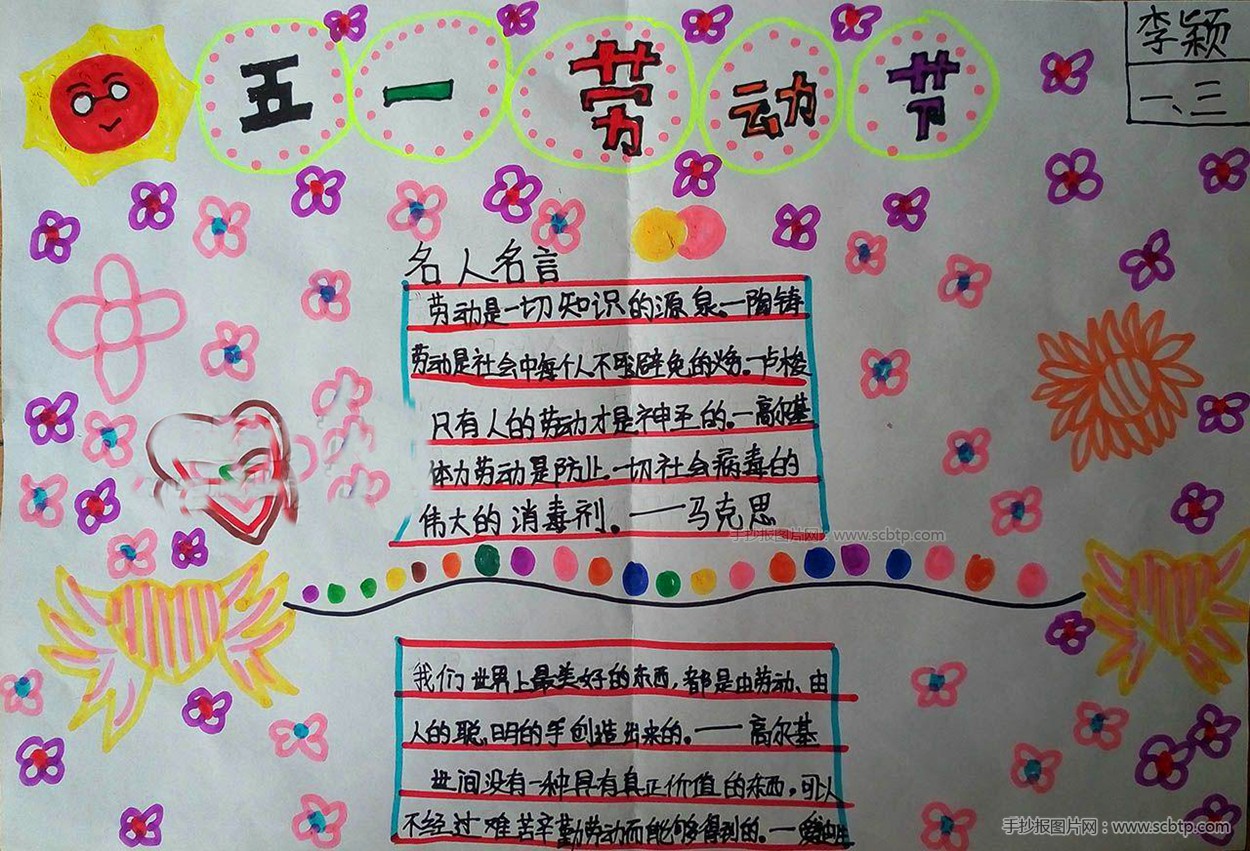 五一劳动节
李颖
一、三
名人名言
劳动是一切知识的源泉。—陶铸
劳动是社会中每个人不可避免的义务。—卢梭
只有人的劳动才是神圣的。—高尔基
体力劳动是防止一切社会病毒的
伟大的消毒剂。——马克思
手抄报图片网：www.scbtp.com
我们世界上最美好的东西，都是由劳动、由
人的聪明的手创造出来的。——高尔基
世间没有一种具有真正价值的东西，可以
不经过难苦辛勤劳动而能够得到的。—爱迪生
手抄报图片网：www.scbtp.com